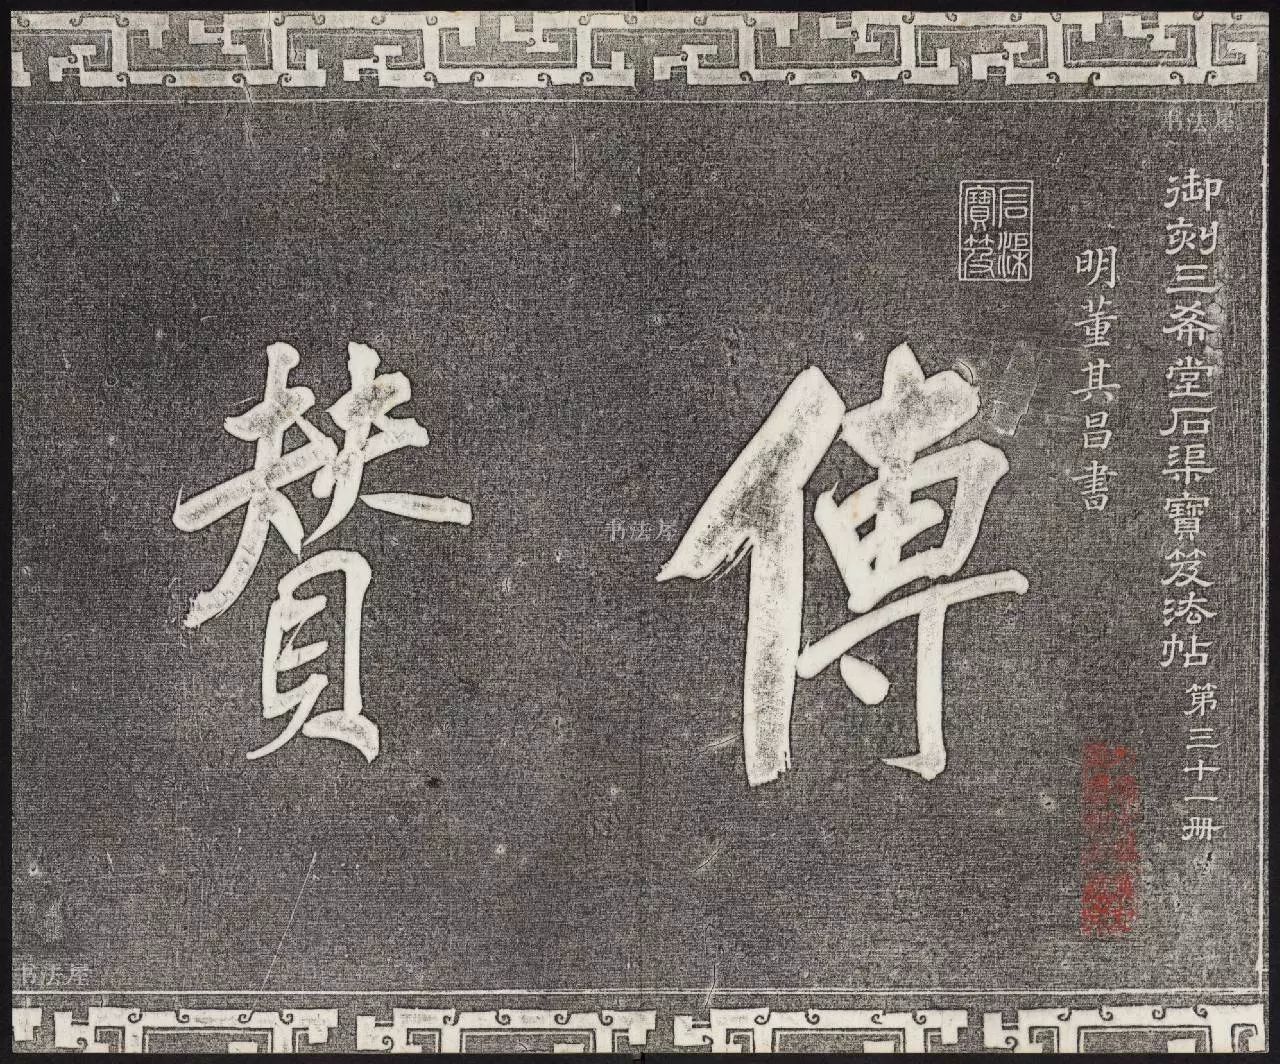 御刻三希堂石渠寶笈法帖 第三十一冊
明董其昌書
石渠寶笈
傳
贊
书法屋
书法屋
书法屋